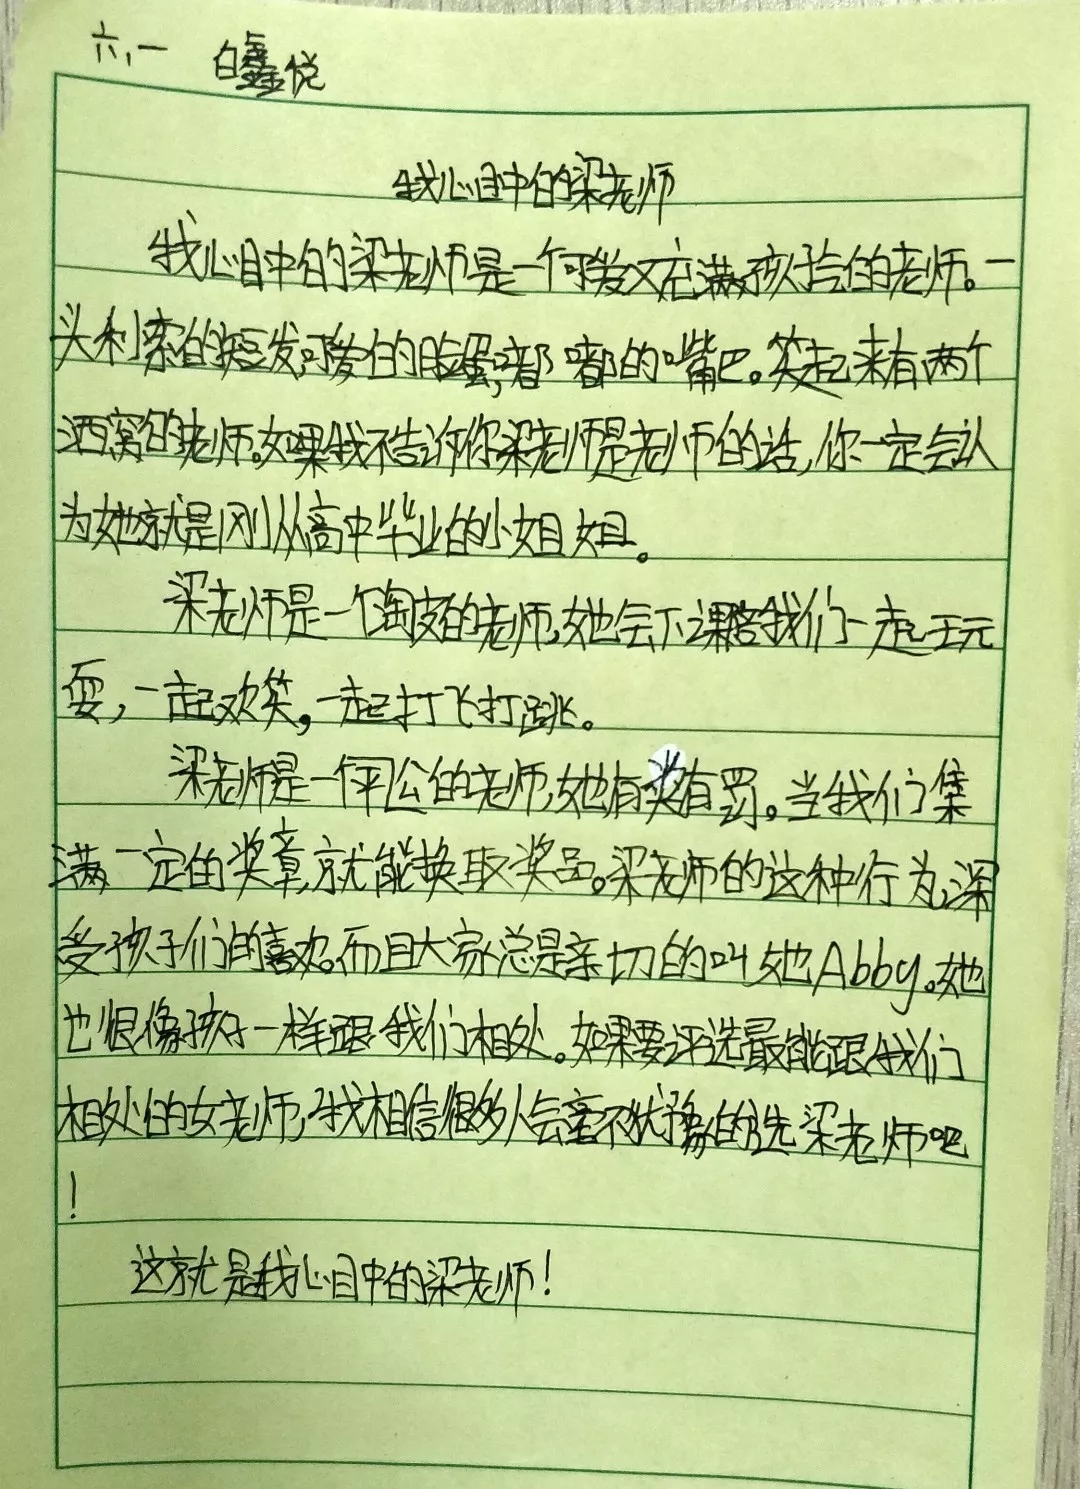 六,一 白鑫悦
我心目中的梁老师
我心目中的梁老师是一个可爱又充满孩子气的老师。一
头利索的短发,可爱的脸蛋,嘟嘟的嘴巴。笑起来有两个
酒窝的老师。如果我不告诉你梁老师是老师的话,你一定会认
为她就是刚从高中毕业的小姐姐。
梁老师是一个淘皮的老师,她会下课陪我们一起玩
耍,一起欢笑,一起打飞打跳。
梁老师是一个平公的老师,她有奖有罚。当我们集
满一定的奖章,就能换取奖品。梁老师的这种行为,深
受孩子们的喜欢。而且大家总是亲切的叫她Abby。她
也很像孩子一样跟我们相处。如果要评选最能跟我们
相处的女老师,我相信很多人会毫不犹豫的选梁老师吧
!
这就是我心目中的梁老师!